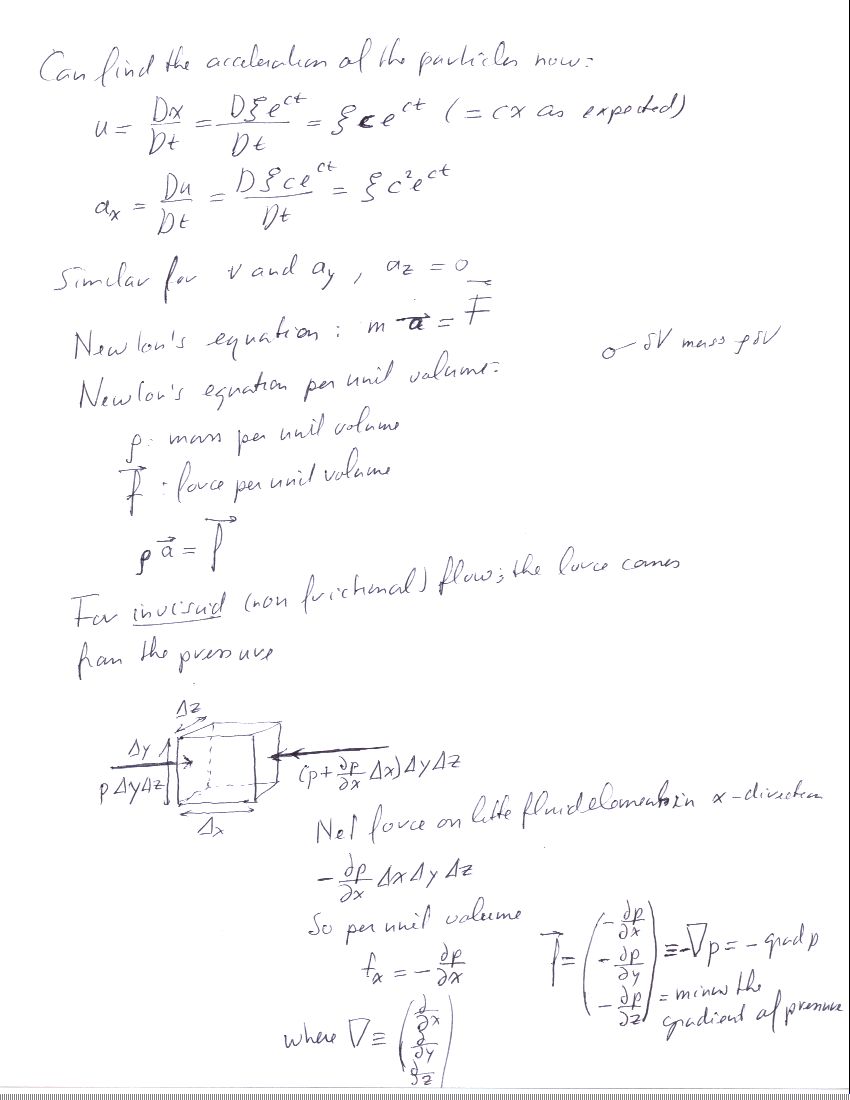 Can find the acceleration of the particles now:
u = Dx/Dt = Dξe^ct/Dt = ξ c e^ct (= cx as expected)
a_x = Du/Dt = Dξce^ct/Dt = ξ c²e^ct
Similar for v and a_y, a_z = 0
Newton's equation: m a⃗ = F⃗
δV mass ρδV
Newton's equation per unit volume:
ρ: mass per unit volume
f⃗: force per unit volume
ρ a⃗ = f⃗
For inviscid (non frictional) flow; the force comes
from the pressure
Δz
Δy
pΔyΔz
(p + ∂p/∂x Δx) Δy Δz
Δx
Net force on little fluid elements in x-direction
- ∂p/∂x Δx Δy Δz
So per unit volume
f_x = - ∂p/∂x
f⃗ = (-∂p/∂x, -∂p/∂y, -∂p/∂z) ≡ -∇p = - grad p
= minus the
gradient of pressure
where ∇ ≡ (∂/∂x, ∂/∂y, ∂/∂z)